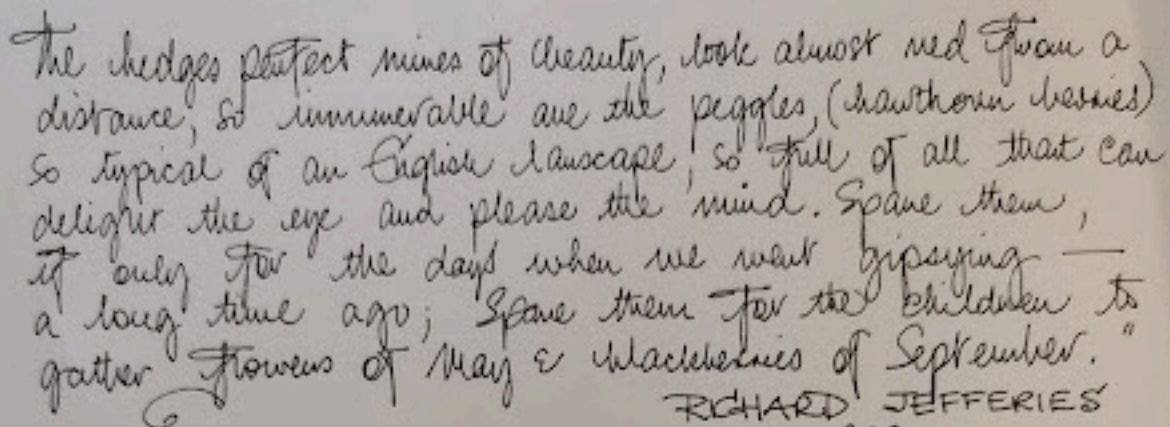 The hedges perfect mines of beauty, look almost red from a
distance, so innumerable are the peggles, (hawthorn berries)
so typical of an English lanscape, so full of all that can
delight the eye and please the mind. Spare them,
if only for the days when we went gipsying —
a long time ago; Spare them for the children to
gather flowers of May & blackberries of September."
RICHARD JEFFERIES